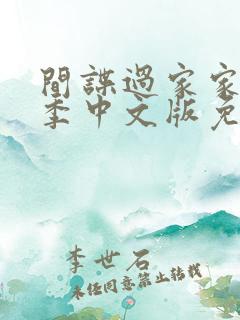 間諜過家家
季中文版免
李世石
未经同意禁止转载